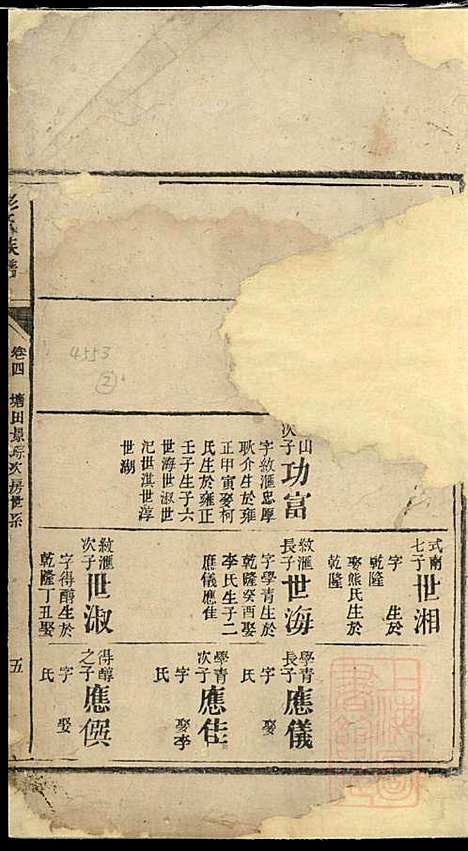 山
次子
功富
字紋滙忠厚
耿介生於雍
正甲寅娶柯
氏生於雍正
壬子生子六
世海世淑世
汜世淇世淳
世湖
式南
七子
世湘
字 生於
乾隆
娶熊氏生於
乾隆
紋滙
長子
世海
字學青生於
乾隆癸酉娶
李氏生子二
應儀應佳
紋滙
次子
世淑
字得醇生於
乾隆丁丑娶
學青
長子
應儀
字 娶
氏
學青
次子
應佳
字 娶李
氏
得醇
之子
應僎
字 娶
氏
族譜
卷四 塘田景琮次房世系
五
4553
2